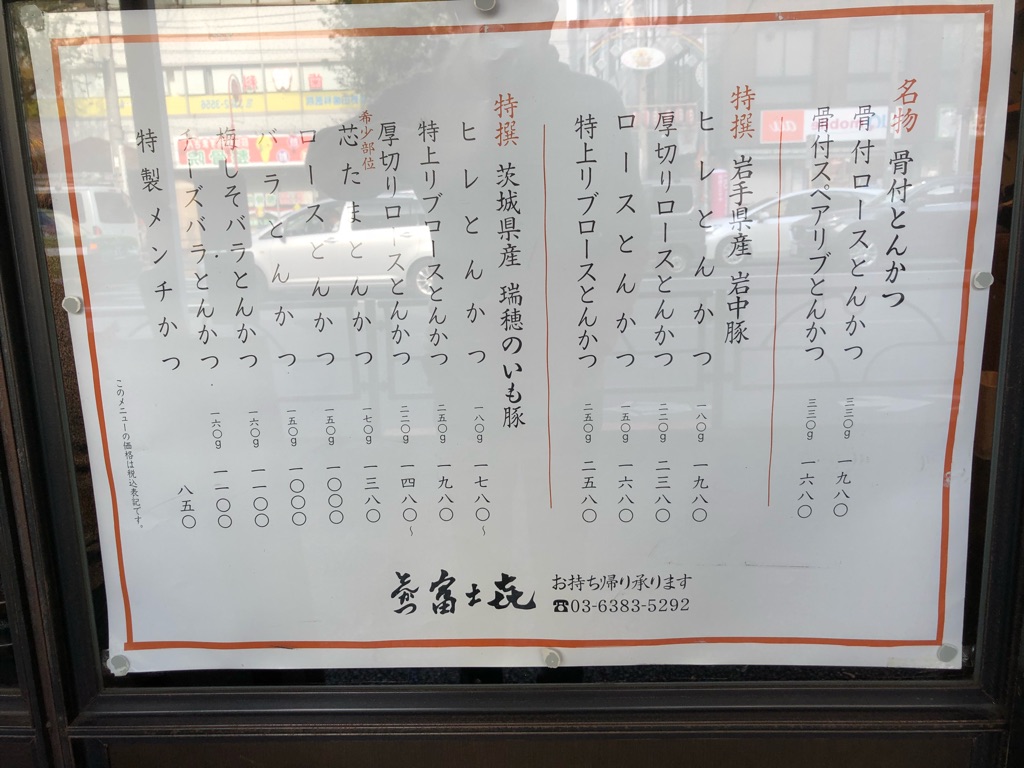 名物 骨付とんかつ
骨付ロースとんかつ 三三〇g 一九八〇
骨付スペアリブとんかつ 三三〇g 一六八〇
特撰 岩手県産 岩中豚
ヒレとんかつ 一八〇g 一九八〇
厚切りロースとんかつ 二二〇g 二三八〇
ロースとんかつ 一五〇g 一六八〇
特上リブロースとんかつ 二五〇g 二五八〇
特撰 茨城県産 瑞穂のいも豚
ヒレとんかつ 一八〇g 一七八〇〜
特上リブロースとんかつ 二五〇g 一九八〇
厚切りロースとんかつ 二二〇g 一四八〇〜
希少部位
芯たまとんかつ 一七〇g 一三八〇
ロースとんかつ 一五〇g 一〇〇〇
バラとんかつ 一五〇g 一〇〇〇
梅しそバラとんかつ 一六〇g 一一〇〇
チーズバラとんかつ 一六〇g 一一〇〇
特製メンチかつ 八五〇
このメニューの価格は税込表記です。
富士㐂
お持ち帰り承ります
☎03-6383-5292